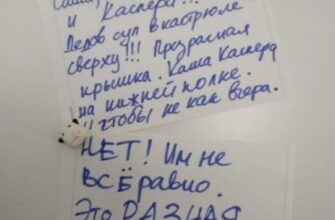 и Каспера!!!
Дедов суп в кастрюле
сверху!!! Прозрачная
крышка. Каша Каспера
на нижней полке.
И чтобы не как вчера.
НЕТ! Им не
ВСЁ равно.
Это РАЗНАЯ